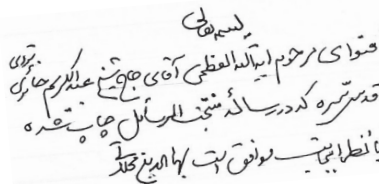 بسمه تعالی
فتوای مرحوم آیة الله العظمی آقای حاج شیخ عبدالکریم حائری یزدی
قدس سره که در رساله منتخب الرسائل چاپ شده
با نظر اینجانب موافق است بهاءالدین محلاتی